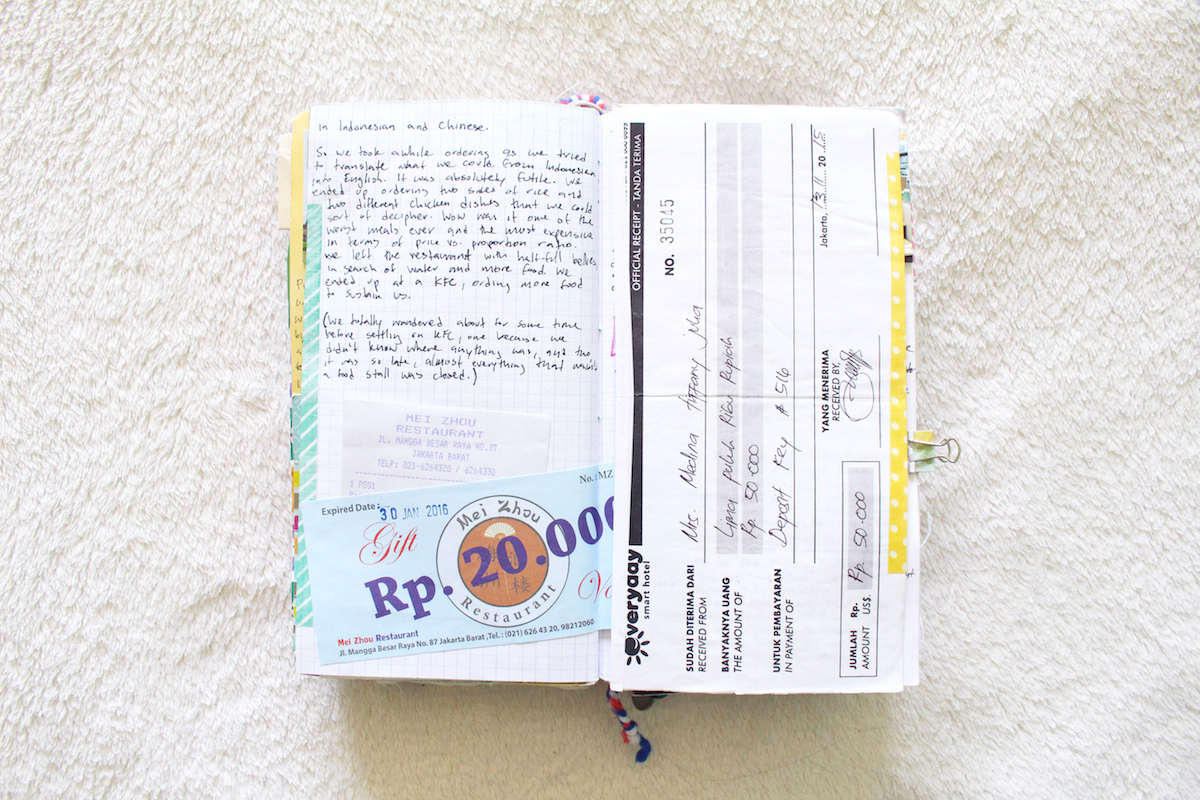 In Indonesian and Chinese.
So we took awhile ordering as we tried
to translate what we could from Indonesian
into English. It was absolutely futile. We
ended up ordering two sides of rice and
two different chicken dishes that we could
sort of decipher. Wow was it one of the
worst meals ever and the most expensive
in terms of price vs. proportion ratio.
We left the restaurant with half-full bellies
in search of water and more food. We
ended up at a KFC, ording more food
to sustain us.
(We totally wandered about for some time
before settling on KFC, one because we
didn't know where anything was, and two
it was so late, almost everything that wasn't
a food stall was closed.)
MEI ZHOU
RESTAURANT
JL. MANGGA BESAR RAYA NO.27
JAKARTA BARAT
TELP: 021-6264320 / 6264330
1 POS1
Expired Date : 30 JAN 2016
No. : MZ
Gift
Mei Zhou
Restaurant
Rp. 20.000
Mei Zhou Restaurant
Jl. Mangga Besar Raya No. 87 Jakarta Barat ,Tel. : (021) 626 43 20, 98212060
everyday
smart hotel
OFFICIAL RECEIPT - TANDA TERIMA
NO. 35045
SUDAH DITERIMA DARI
RECEIVED FROM
Mrs. Madina tiffany julia
BANYAKNYA UANG
THE AMOUNT OF
Lima puluh Ribu Rupiah
Rp 50.000
UNTUK PEMBAYARAN
IN PAYMENT OF
Deposit Key # 516
Jakarta, 20 15
YANG MENERIMA
RECEIVED BY,
JUMLAH Rp.
AMOUNT US$.
Rp. 50.000